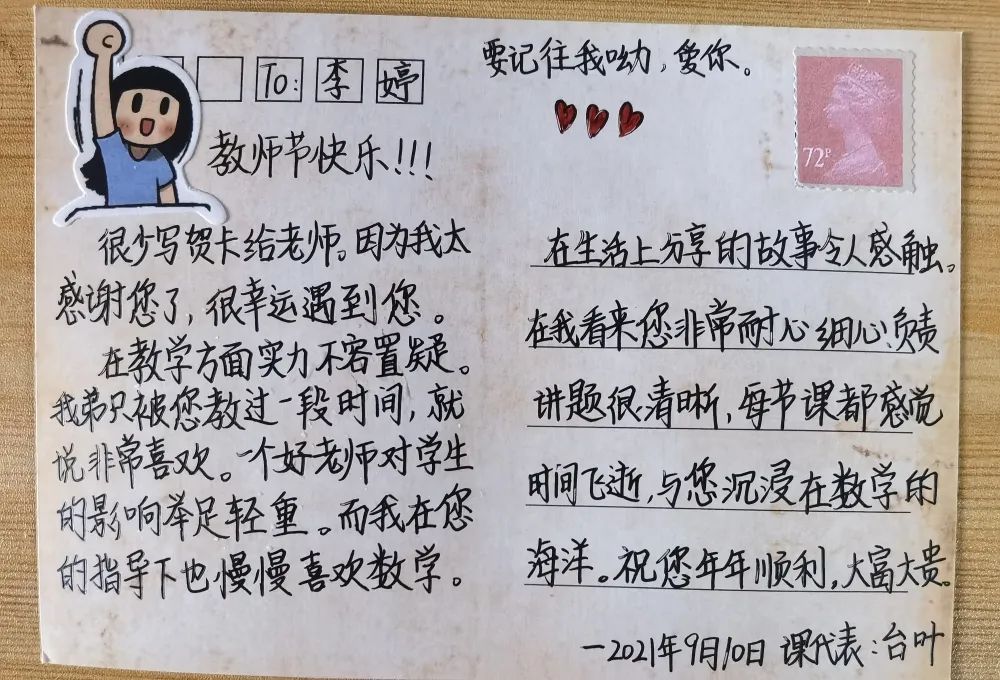 To: 李婷
教师节快乐!!!
很少写贺卡给老师。因为我太
感谢您了，很幸运遇到您。
在教学方面实力不容置疑。
我弟只被您教过一段时间，就
说非常喜欢。一个好老师对学生
的影响举足轻重。而我在您
的指导下也慢慢喜欢数学。
要记住我呦，爱你。
72P
在生活上分享的故事令人感触。
在我看来您非常耐心细心负责
讲题很清晰，每节课都感觉
时间飞逝，与您沉浸在数学的
海洋。祝您年年顺利，大富大贵。
—2021年9月10日 课代表：台叶